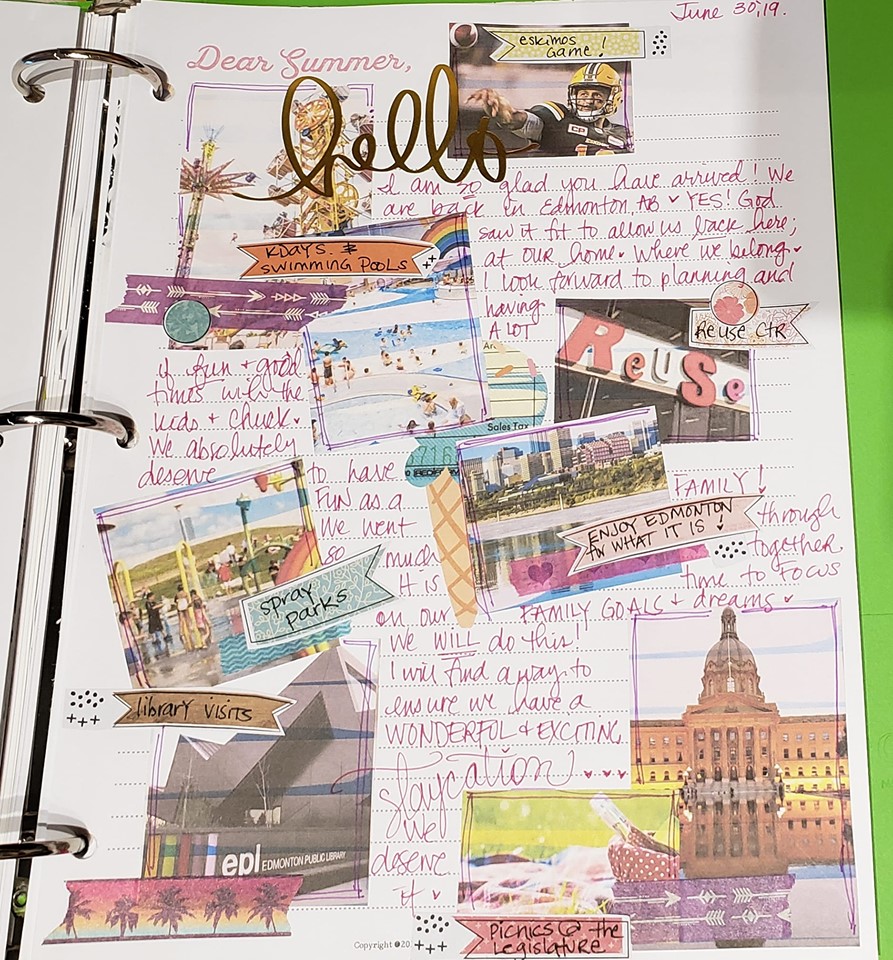 June 30, 19.
Dear Summer,
hello
eskimos
Game!
I am so glad you have arrived! We
are back in Edmonton, AB ♥ YES! God
saw it fit to allow us back here;
at our home. Where we belong.
I look forward to planning and
having
A LOT
KDAYS. &
SWIMMING POOLS
Reuse CTR
ReUSe
of fun + good
times with the
kids + Chuck.
We absolutely
deserve to have
FUN as a FAMILY!
We went through
so much together
It is time to FOCUS
on our FAMILY GOALS + dreams ♥
We WILL do this!
I will find a way to
ensure we have a
WONDERFUL + EXCITING
staycation
We
deserve
it ♥
Sales Tax
ENJOY EDMONTON
for WHAT IT IS!
spray
parks
library visits
epl EDMONTON PUBLIC LIBRARY
Picnics @ the
Legislature
Copyright ©20